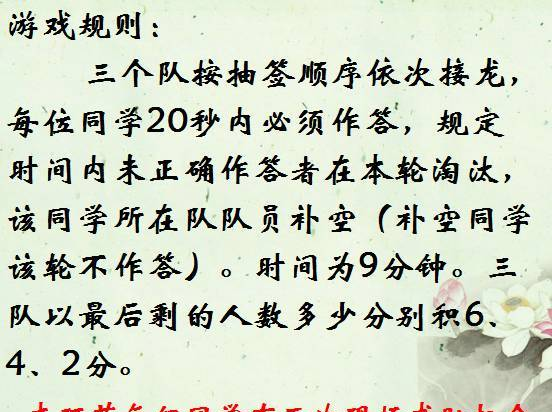 游戏规则：
三个队按抽签顺序依次接龙，
每位同学20秒内必须作答，规定
时间内未正确作答者在本轮淘汰，
该同学所在队队员补空（补空同学
该轮不作答）。时间为9分钟。三
队以最后剩的人数多少分别积6、
4、2分。